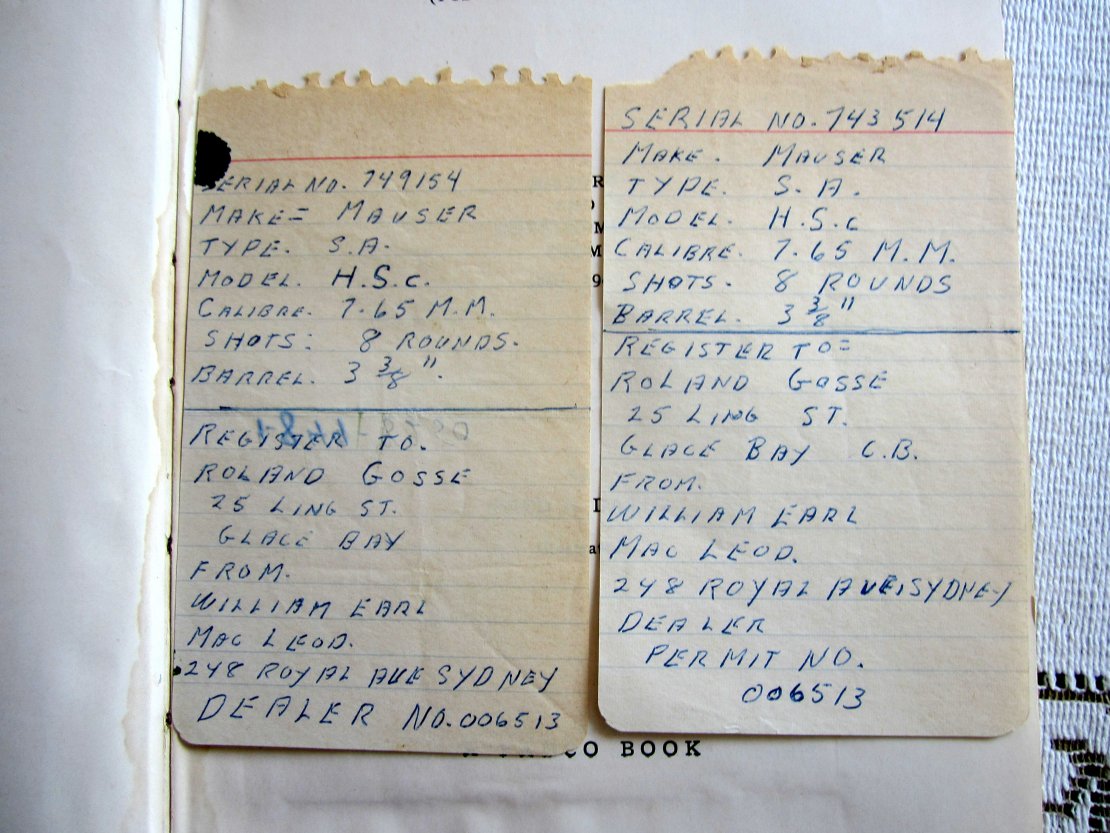 SERIAL NO. 749154
MAKE= MAUSER
TYPE. S.A.
MODEL. H.S.c.
CALIBRE. 7.65 M.M.
SHOTS: 8 ROUNDS.
BARREL. 3 3/8 ".
REGISTER TO.
ROLAND GOSSE
25 LING ST.
GLACE BAY
FROM.
WILLIAM EARL
MAC LEOD.
248 ROYAL AVE SYDNEY
DEALER NO. 006513
SERIAL NO. 743514
MAKE. MAUSER
TYPE. S.A.
MODEL. H.S.c
CALIBRE. 7.65 M.M.
SHOTS. 8 ROUNDS
BARREL. 3 3/8 "
REGISTER TO=
ROLAND GOSSE
25 LING ST.
GLACE BAY C.B.
FROM.
WILLIAM EARL
MAC LEOD.
248 ROYAL AVE SYDNEY
DEALER
PERMIT NO.
006513
BOOK